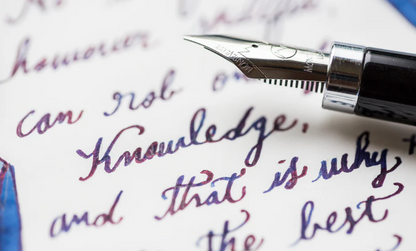 however
can rob
Knowledge,
and that is why
the best